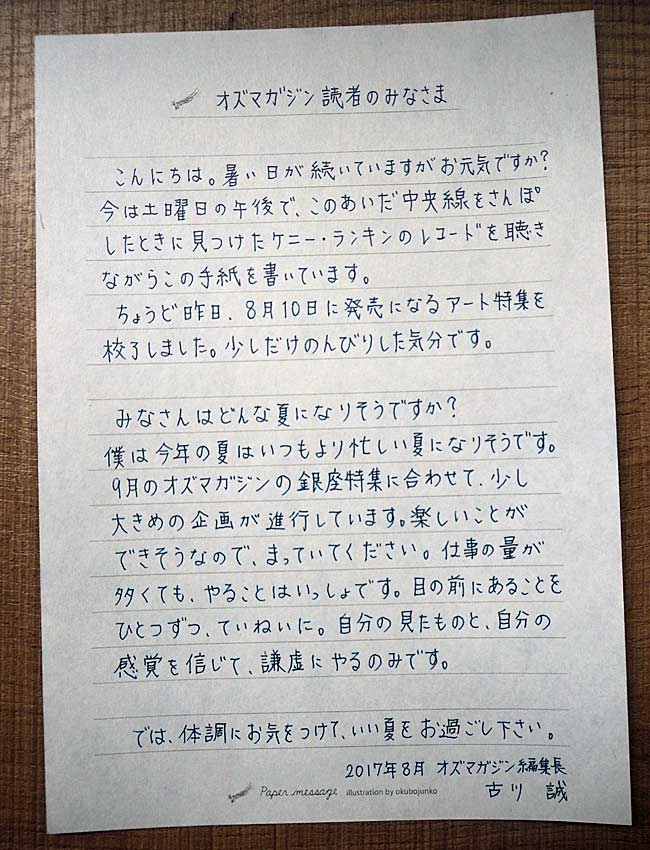 オズマガジン読者のみなさま
こんにちは。暑い日が続いていますがお元気ですか?
今は土曜日の午後で、このあいだ中央線をさんぽ
したときに見つけたケニー・ランキンのレコードを聴き
ながらこの手紙を書いています。
ちょうど昨日、8月10日に発売になるアート特集を
校了しました。少しだけのんびりした気分です。
みなさんはどんな夏になりそうですか?
僕は今年の夏はいつもより忙しい夏になりそうです。
9月のオズマガジンの銀座特集に合わせて、少し
大きめの企画が進行しています。楽しいことが
できそうなので、まっていてください。仕事の量が
多くても、やることはいっしょです。目の前にあることを
ひとつずつ、ていねいに。自分の見たものと、自分の
感覚を信じて、謙虚にやるのみです。
では、体調にお気をつけて、いい夏をお過ごし下さい。
2017年8月 オズマガジン編集長
古川 誠
Paper message illustration by okubojunko